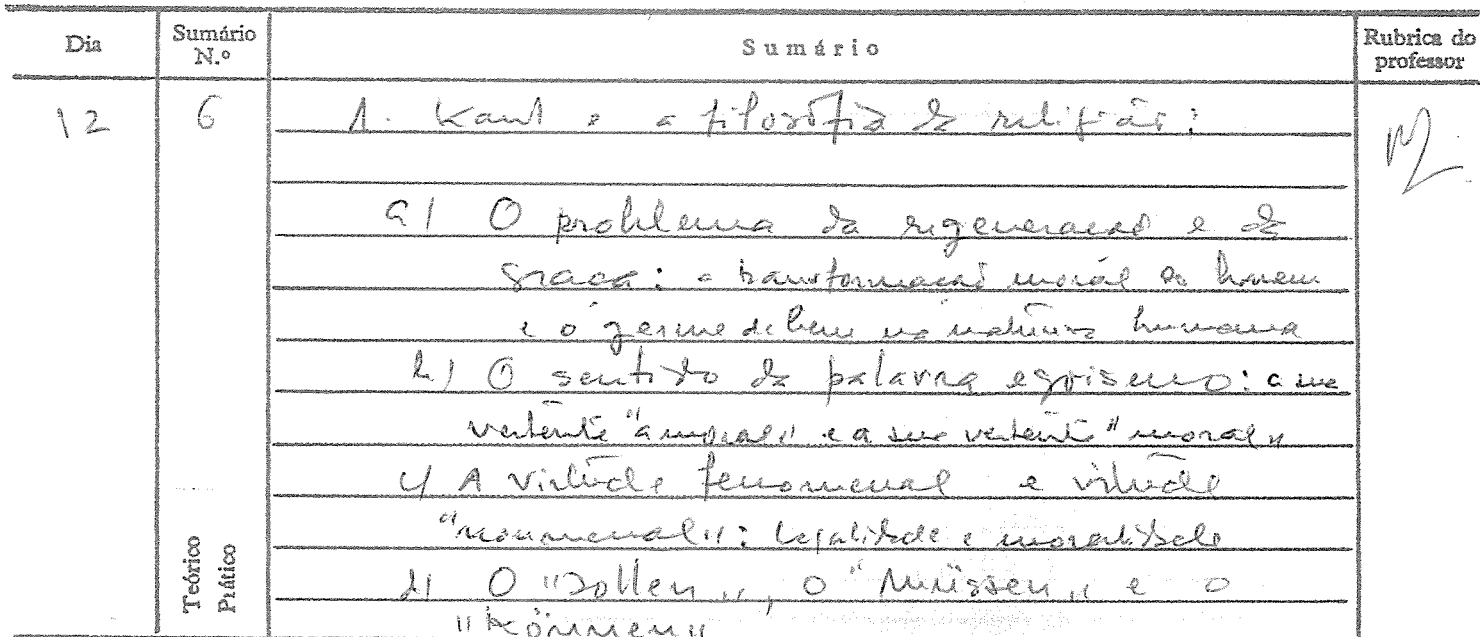 Dia Sumário N.º Sumário Rubrica do professor
12 6 1. Kant e a filosofia da religião:
a) O problema da regeneração e da
graça: a transformação moral do homem
e o germe de bem na natureza humana
b) O sentido da palavra egoísmo: a sua
vertente "amoral" e a sua vertente "moral"
c) A virtude fenomenal e virtude
"noumenal": legalidade e moralidade
d) O "Sollen", o "Müssen" e o
"Können"
Teórico
Prático